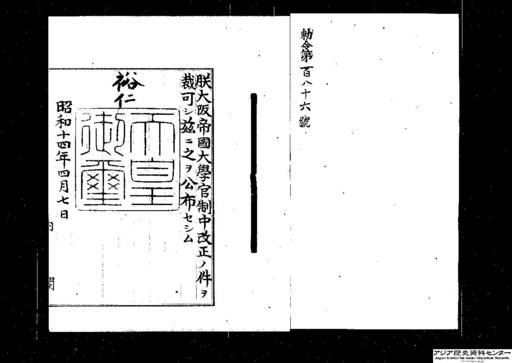 勅令第百八十六號
朕大阪帝國大學官制中改正ノ件ヲ
裁可シ茲ニ之ヲ公布セシム
裕仁
天皇
御璽
昭和十四年四月七日
内閣
アジア歴史資料センター
Japan Center for Asian Historical Records